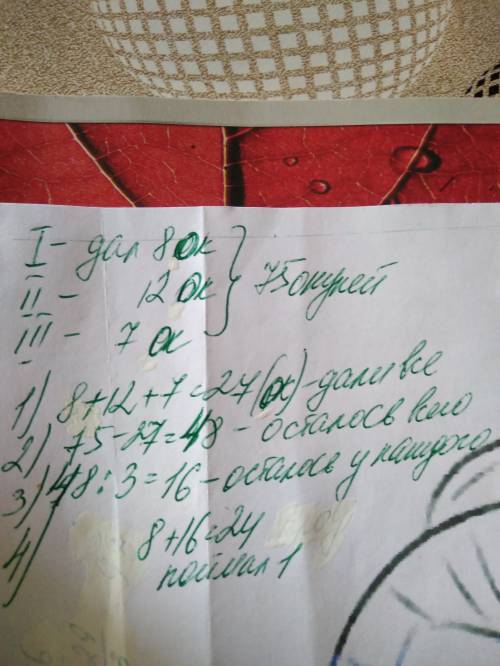 I - дал 8 ок
II - 12 ок
III - 7 ок
75 окуней
1) 8+12+7=27(ок)-дали все
2) 75-27=48 - осталось всего
3) 48:3=16 - осталось у каждого
4) 8+16=24
поймал 1